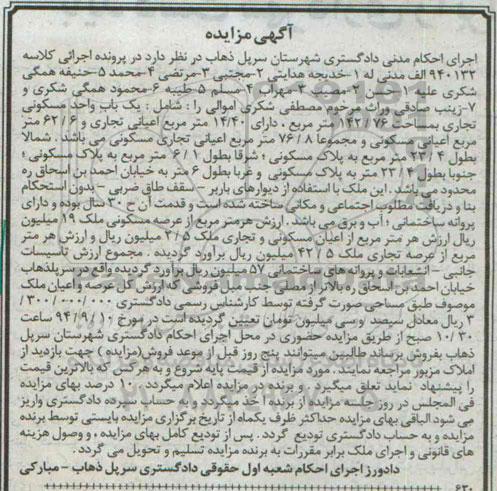 آگهی مزایده
اجرای احکام مدنی دادگستری شهرستان سرپل ذهاب در نظر دارد در پرونده اجرائی کلاسه
۹۴۰۱۳۲ الف مدنی له ۱-خدیجه هدایتی ۲-مجتبی ۳-مرتضی ۴-محمد ۵-حنیفه همگی
شکری علیه ۱- حسن ۲-مصیب ۳-مهراب ۴-مسلم ۵-طیبه ۶-محمود همگی شکری و
۷-زینب صادقی وراث مرحوم مصطفی شکری اموالی را : شامل : یک باب واحد مسکونی
تجاری بمساحت ۱۴۲/۷۶ متر مربع . دارای ۱۴/۴۰ متر مربع اعیانی تجاری و ۶۲/۶ متر
مربع اعیانی مسکونی و مجموعا ۷۶/۸ متر مربع اعیانی تجاری مسکونی می باشد . شمالا
بطول ۲۳/۴ متر مربع به پلاک مسکونی ؛ شرقا بطول ۶/۱ متر مربع به پلاک مسکونی ؛
جنوبا بطول ۲۳/۴ متر به پلاک مسکونی و غربا بطول ۶ متر به خیابان احمد بن اسحاق ره
محدود می باشد . این ملک با استفاده از دیوارهای باربر - سقف طاق ضربی - بدون استحکام
بنا و دریافت مطلوب اجتماعی و مکانی ساخته شده است و قدمت آن ح ۳۰ سال بوده و دارای
پروانه ساختمانی ؛ آب و برق می باشد . ارزش هرمتر مربع از عرصه مسکونی ملک ۱۹ میلیون
ریال ارزش هر متر مربع از اعیان مسکونی و تجاری ملک ۳/۵ میلیون ریال و ارزش هر متر
مربع از عرصه تجاری ملک ۴۲/۵ میلیون ریال برآورد گردیده . مجموع ارزش تاسیسات
جانبی - انشعابات و پروانه های ساختمانی ۵۷ میلیون ریال برآورد گردیده واقع در سرپلذهاب
خیابان احمدبن اسحاق ره بالاتر از مصلی جنب مبل فروشی که ارزش کل عرصه و اعیان ملک
موصوف طبق مساحی صورت گرفته توسط کارشناس رسمی دادگستری ۳۰۰/۰۰۰/۰۰۰/
۳ ریال معادل سیصد و سی میلیون تومان تعیین گردیده است در مورخ ۹۴/۹/۱۰ ساعت
۱۰/۳۰ صبح از طریق مزایده حضوری در محل اجرای احکام دادگستری شهرستان سرپل
ذهاب بفروش برساند طالبین میتوانند پنج روز قبل از موعد فروش(مزایده) جهت بازدید از
املاک مزبور مراجعه نمایند . مورد مزایده از قیمت پایه شروع و به هر کس که بالاترین قیمت
را پیشنهاد نماید تعلق میگیرد . و برنده در مزایده اعلام میگردد . ۱۰ درصد بهای مزایده
فی المجلس در روز جلسه مزایده از برنده اخذ میگردد و به حساب سپرده دادگستری واریز
می شود.الباقی بهای مزایده حداکثر ظرف یکماه از تاریخ برگزاری مزایده بایستی توسط برنده
مزایده و به حساب دادگستری تودیع گردد . پس از تودیع کامل بهای مزایده ، و وصول هزینه
های قانونی و اجرای ملک برابر مقررات به برنده مزایده تسلیم و تحویل می گردد .
دادورز اجرای احکام شعبه اول حقوقی دادگستری سرپل ذهاب - مبارکی
۶۳۰